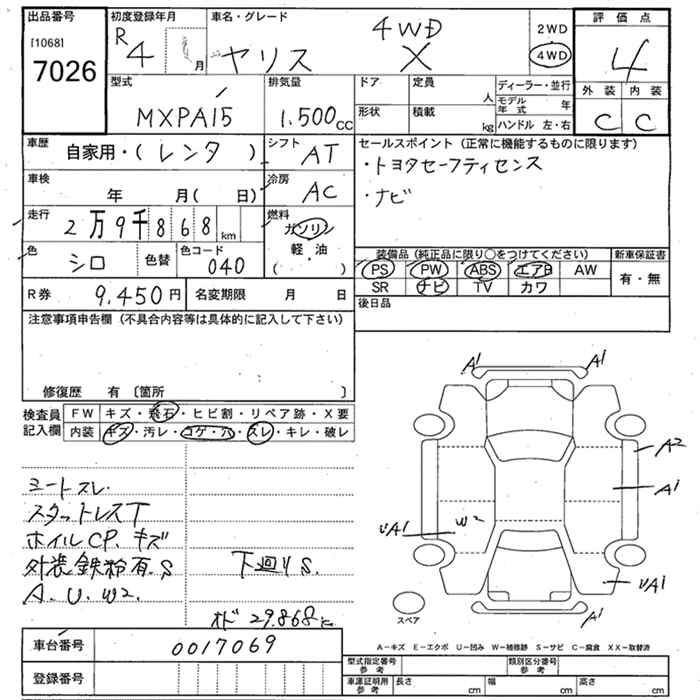 出品番号 初度登録年月 車名・グレード 評価点
[1068] R4 月 ヤリス 4WD X 2WD 4WD 4
7026
型式 排気量 ドア 定員 人 ディーラー・並行 外装 内装
MXPA15 1.500cc 形状 積載 kg モデル年式 年 C C
ハンドル 左・右
車歴 自家用・(レンタ) シフト AT セールスポイント (正常に機能するものに限ります)
・トヨタセーフティセンス
車検 年 月( 日) 冷房 AC ・ナビ
走行 2万9千868km 燃料 ガソリン
軽・油
( )
色 シロ 色替 色コード 040 装備品 (純正品に限り○をつけてください) 新車保証書
PS PW ABS エアB AW 有・無
SR ナビ TV カワ
R券 9,450円 名変期限 月 日 後日品
注意事項申告欄 (不具合内容等は具体的に記入して下さい)
修復歴 有 〔箇所 〕
検査員記入欄 FW キズ・飛石・ヒビ割・リペア跡・X要
内装 キズ・汚レ・コゲ・穴・スレ・キレ・破レ
シートスレ
スタットレスT
ホイルCP. キズ
外装鉄粉有.S 下廻りS.
A.U.W2.
オド 29.868K
A1 A1
A2
A1
UA1 W2
UA1
A1
スペア
A−キズ E−エクボ U−凹み W−補修跡 S−サビ C−腐食 XX−取替済
車台番号 0017069
登録番号
型式指定番号 参考 類別区分番号 参考
車庫証明用 参考 長さ cm 幅 cm 高さ cm